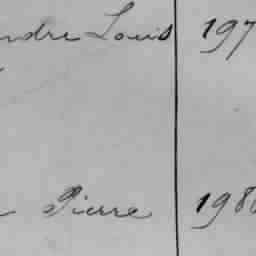 ndre Louis 197
Pierre 198